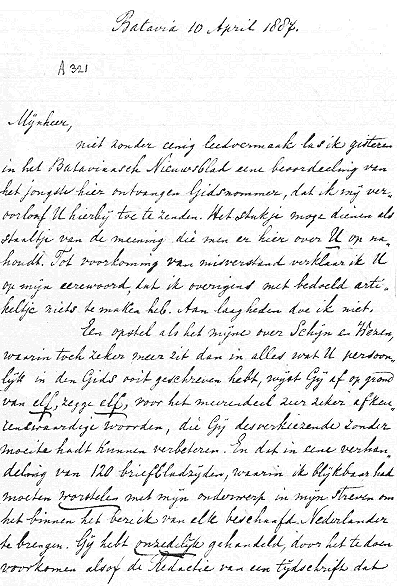 Batavia 10 April 1887.
A 321
Mijnheer,
niet zonder eenig leedvermaak las ik gisteren
in het Bataviaasch Nieuwsblad eene beoordeeling van
het jongste hier ontvangen Gidsnommer, dat ik mij ver-
oorloof U hierbij toe te zenden. Het stukje moge dienen als
staaltje van de meening die men er hier over U op na
houdt. Tot voorkoming van misverstand verklaar ik U
op mijn eerewoord, dat ik overigens met bedoeld arti-
keltje niets te maken heb. Aan laagheden doe ik niet.
Een opstel als het mijne over Schijn en Wezen,
waarin toch zeker meer zit dan in alles wat U persoon-
lijk in den Gids ooit geschreven hebt, wijst Gij af op grond
van elf, zegge elf, voor het meerendeel zeer zeker afkeu-
renswaardige woorden, die Gij desverkiezende zonder
moeite hadt kunnen verbeteren. En dat in eene verhan-
deling van 120 briefbladzijden, waarin ik blijkbaar had
moeten worstelen met mijn onderwerp in mijn streven om
het binnen het bereik van elk beschaafd Nederlander
te brengen. Gij hebt onzedelijk gehandeld, door het te doen
voorkomen alsof de Redactie van een tijdschrift dat